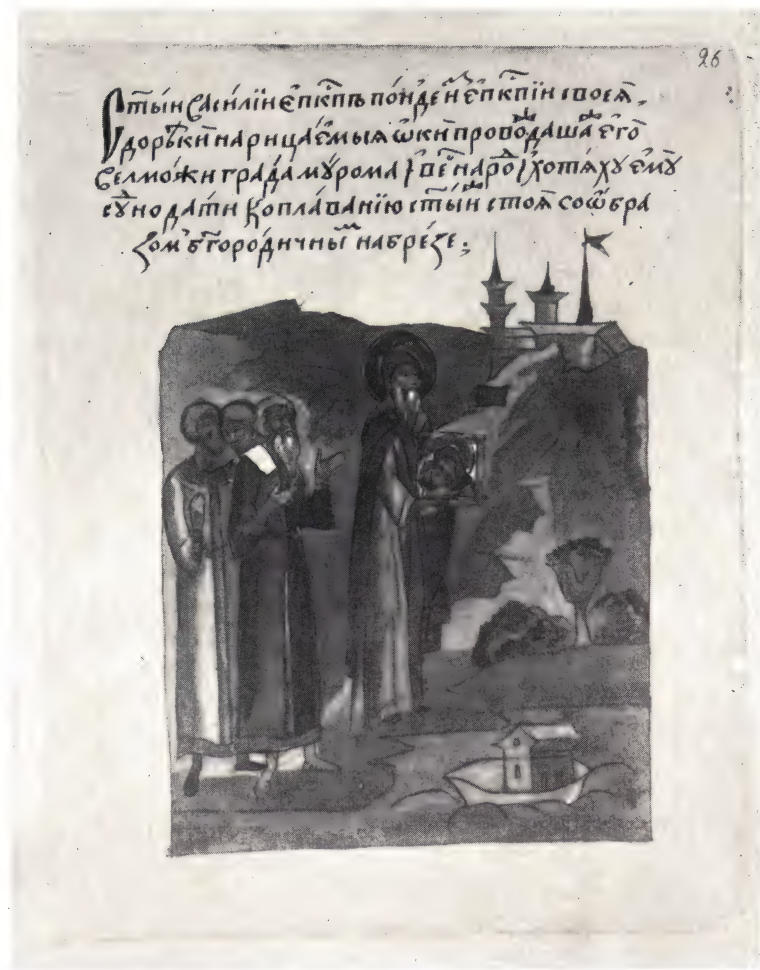 26
Ст҃ыи Василїи є҆пⷭ҇кпъ пои́де и҆́з̾ є҆пⷭ҇кпїи своеѧ̀,
ѹ҆ дорѣки нарица́емыѧ ѡ҆ки̾ прово́даша є҆го̀
велмо́жи гра́да мꙋ́рома и҆ ве́сь наро́дъ хотѧ́хꙋ є҆мꙋ̀
сꙋ́дно да́ти ко пла́ванїю ст҃ы́и стоѧ̀ со ѡ҆́бра
зом̾ бг҃оро́дичнымъ на бре́зе ;